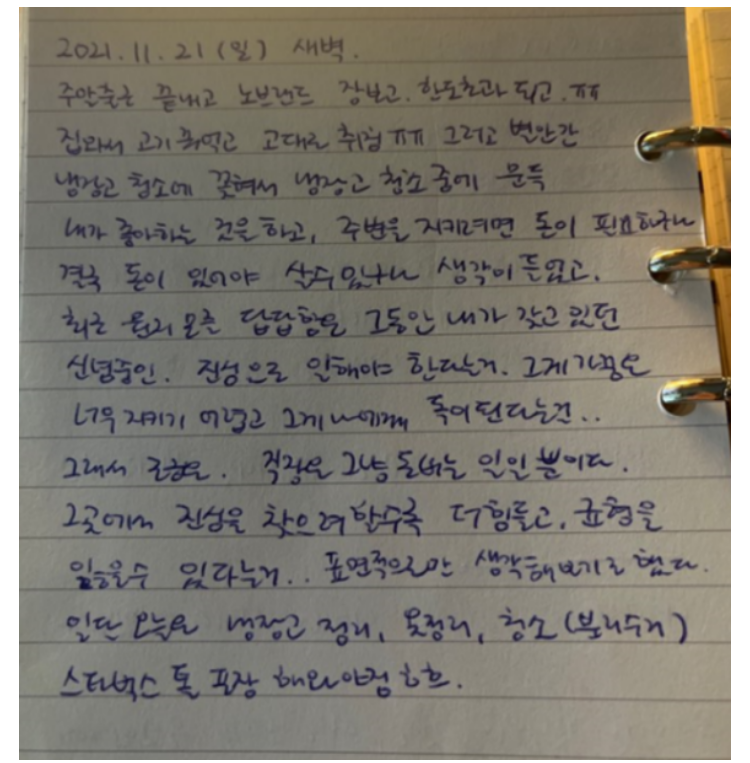 2021.11.21(일) 새벽.
주안출근 끝내고 노브랜드 장보고. 한도초과 되고.ㅠㅠ
집와서 고기 궈먹고 고대로 취침 ㅠㅠ 그러고 별안간
냉장고 청소에 꽂혀서 냉장고 청소중에 문득
내가 좋아하는 것을 하고, 주변을 지키려면 돈이 필요하구나
결국 돈이 있어야 살수있구나 생각이 들었고.
최근 모를 답답함은 그동안 내가 갖고 있던
신념중인. 진심으로 일해야 한다는거. 그게 가끔은
너무 지키기 어렵고 그게 나에게 독이된다는건..
그래서 조금은. 직장은 그냥 돈버는 일일 뿐이다.
그곳에서 진심을 찾으려 할수록 더 힘들고, 균형을
잃을수 있다는거.. 표면적으로만 생각해보기로 했다.
일단 오늘은 냉장고 정리, 옷정리, 청소(분리수거)
스타벅스 톨 포장 해와야징 흐흐.